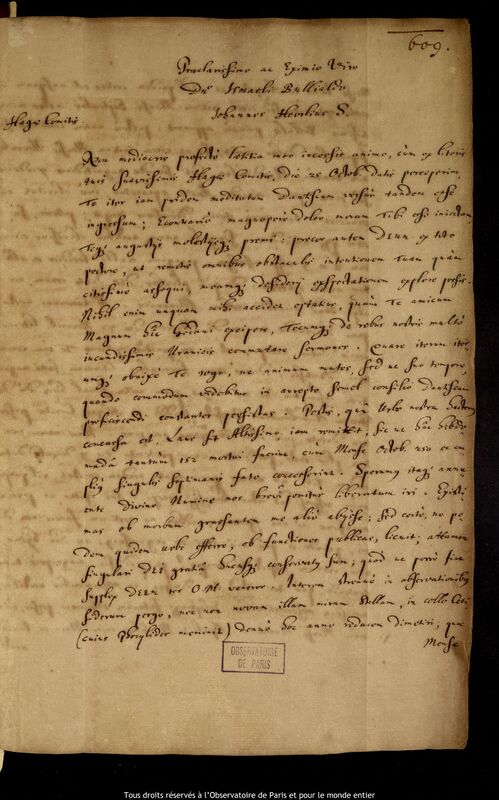 609.
Praeclarissimo ac Eximio Viro
Dno Ismaeli Bullialdo
Johannes Hevelius S.
Hagae Comitis.
Non mediocris profectò laetitia meo incessit animo, cùm ex literis
tuis suavissimis Hagae Comitis, die 28 Octob. datis perceperim,
Te iter iam pridem meditatum Dantiscum versùs tandem esse
ingressum; Econtrariò magnopere doleo moram Tibi esse iniectam
Teque angustijs molestijsque premi: precor autem DEUM ex toto
pectore, ut remotis omnibus obstaculis intentionem tuam quàm
citissimè assequi, meamque desiderij exspectationem explere possis.
Nihil enim unquam mihi accidet optatius, quàm Te amicum
Magnum hîc Gedani excipere, Tecumque de rebus nostris multò
iucundissimis Uranicis commutare sermones. Quare iterum iter
umque obnixè Te rogo, ne animum mutes, sed ut suo tempore,
quando commodum videbitur in arrepto semel consilio Dantiscum
proficiscendi constanter persistas. Pestis, quâ Urbs nostra hactenus
concussa est, Laus sit Altissimo iam remittit, sic ut hac hebdo
madâ tantùm 152 mortui fuerint, cùm Mense Octob. 250 et am
pliùs singulis septimanis fato concesserint. Speramus itaque annu
ente Divino Numine nos brevi penitùs liberatum iri. Existi
mas ob morbum grassantem me aliò abijsse; sed certè, ne pe
dem quidem urbe efferre, ob functiones publicas, licuit, attamen
singulari DEI gratiâ hucusque conservatus sum; quod ut porrò fiat
supplex DEUM ter O. M. veneror. Interim strenuè in observationibus
siderum pergo, nec non novam illam miram stellam, in collo Ceti
(cuius Phocylides meminit) denuò hoc anno reducem dimetiri; quae
Mense
OBSERVATOIRE
DE PARIS
Tous droits réservés à l'Observatoire de Paris et pour le monde entier